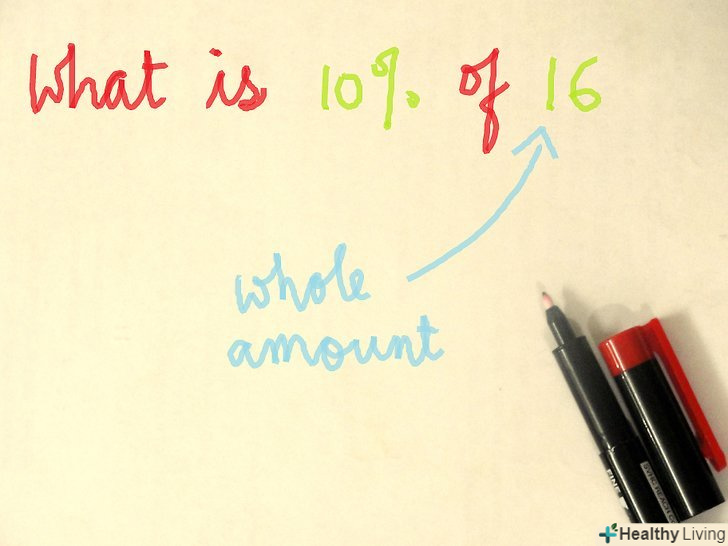 What is 10% of 16
whole
amount
FINE
Healthy Living